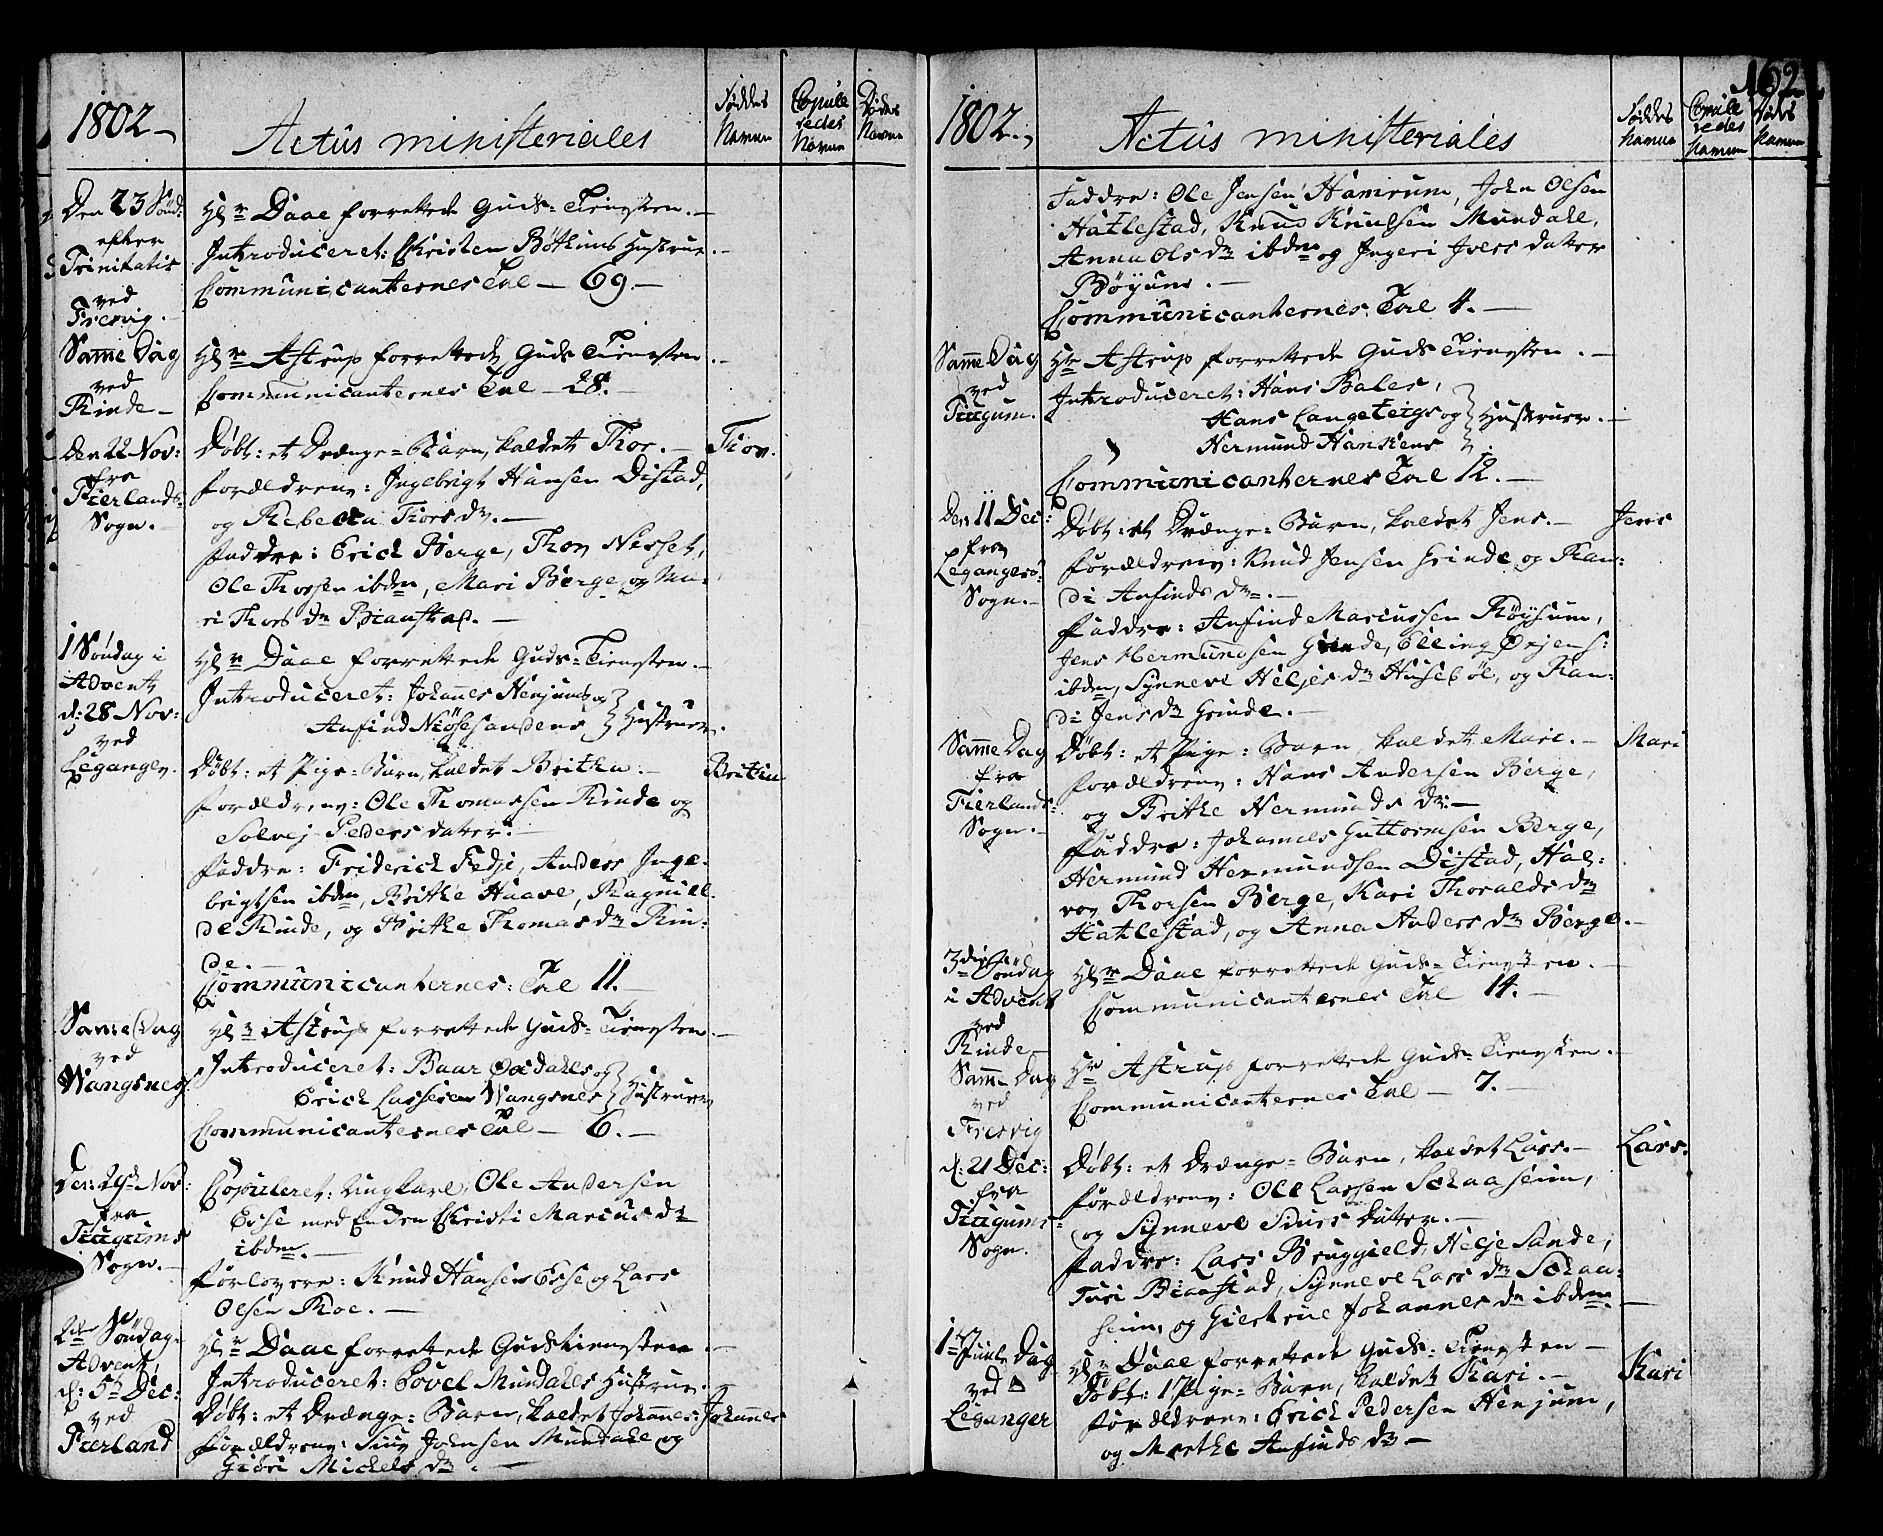 1802 Actus ministeriales Føddes Navne Copule redes Navne Dødes Navne
Den 23 Sønd: efter Trinitatis ved Fresvig.
Hr Daae forrettede Guds-Tienesten.
Introduceret: Christen Böthuns Hustrue.
Communicanternes Tal 69.
Samme Dag ved Rinde
Hr Astrup forrettede Guds Tienesten.
Communicanternes Tal 28.
Den 22 Nov: fra Fierlands Sogn.
Døbt: et Drænge-Barn, kaldet Thor. Thor.
Forældrene: Ingebrigt Hansen Distad,
og Rebecka Thors dr.
Faddre: Erick Berge, Thor Nesset,
Ole Thorsen ibdm, Mari Berge, og Ma-
ri Thors dr Bianstad.
1 Søndag i Advent d: 28 Nov: ved Leganger.
Hr Daae forrettede Guds-Tienesten.
Introduceret: Johannes Henjums og
Anfind Niøsesandens Hustruer.
Døbt: et Pige-Barn, kaldet Britha. Britha
Forældrene: Ole Thomassen Rinde og
Solvej Peders datter.
Faddre: Friderich Fedje, Anders Inge-
brigtsen ibdm, Brithe Haave, Ragnil-
de Rinde, og Brithe Thomas dr Rin-
de
Communicanternes: Tal 11.
Samme Dag ved Wangsnes
Hr Astrup forrettede Guds-Tienesten.
Introduceret: Baar Oxdahls og
Erick Lassesen Wangsnes Hustruer
Communicanternes Tal 6.
Den: 29de Nov: fra Tiugums Sogn.
Copuleret: Ungkarl, Ole Andersen
Esse med Enken Christi Marcus dr
ibdm.
Forlovere: Knud Hansen Esse og Lars
Olsen Roe.
2den Søndag Advent, d: 5te Dec: ved Fierland
Hr Daae forrettede Gudstienesten.
Introduceret: Povel Mundahls Hustrue.
Døbt: et Drænge-Barn, kaldet Johannes: Johannes
Forældrene: Siur Johnsen Mundahl og
Giøri Michels dr.
162
1802. Actus ministeriales Føddes Navne Copule redes Navne Dødes Navne
Faddre: Ole Jensen Hamrum, John Olsen
Hatlestad, Knud Knudsen Mundahl,
Anna Ols dr ibdm og Ingeri Ivers datter
Böyum.
Communicanternes Tal 4.
Samme Dag ved Tiugum.
Hr Astrup forrettede Guds Tienesten.
Introduceret: Hans Bales,
Hans Langeteigs og Hustruer.
Hermund Hansens
Communicanternes Tal 12.
Den 11 Dec: fra Legangers Sogn.
Døbt: et Drænge-Barn, kaldet Jens. Jens
Forældrene: Knud Jensen Grinde og Ran-
di Anfinds dr.
Faddre: Anfind Marcussen Röysum,
Jens Hermundsen Grinde, Elling Ørjens:
ibdm, Synneve Heljes dr Husebøe, og Ran-
di Jens dr Grinde.
Samme Dag fra Fierlands Sogn.
Døbt: et Pige-Barn, kaldet Mari. Mari
Forældrene: Hans Andersen Berge,
og Brithe Hermunds dr.
Faddre: Johannes Guttormsen Berge,
Hermund Hermundsen Distad, Hal-
vor Thorsen Berge, Kari Thoralds dr
Hatlestad, og Anna Anders dr Berge.
3die Søndag i Advent ved Rinde
Hr Daae forrettede Guds-Tienesten.
Communicanternes Tal 14.
Samme Dag ved Fresvig
Hr Astrup forrettede Guds-Tienesten.
Communicanternes Tal 7.
d: 21 Dec: fra Tiugums Sogn.
Døbt: et Drænge-Barn, kaldet Lars. Lars.
Forældrene: Ole Larsen Schaaseim,
og Synneve Siurs Datter.
Faddre: Lars Bruggield, Helje Sande,
Turi Bianstad, Synneve Lars dr Schaa-
seim, og Giertrue Johannes dr ibdm.
1te Juule Dag ved Leganger
Hr Daae forrettede Guds-Tienesten
Døbt: 1 Pige-Barn, kaldet Kari. Kari
Forældrene: Erich Pedersen Henjum,
og Marthe Anfinds dr